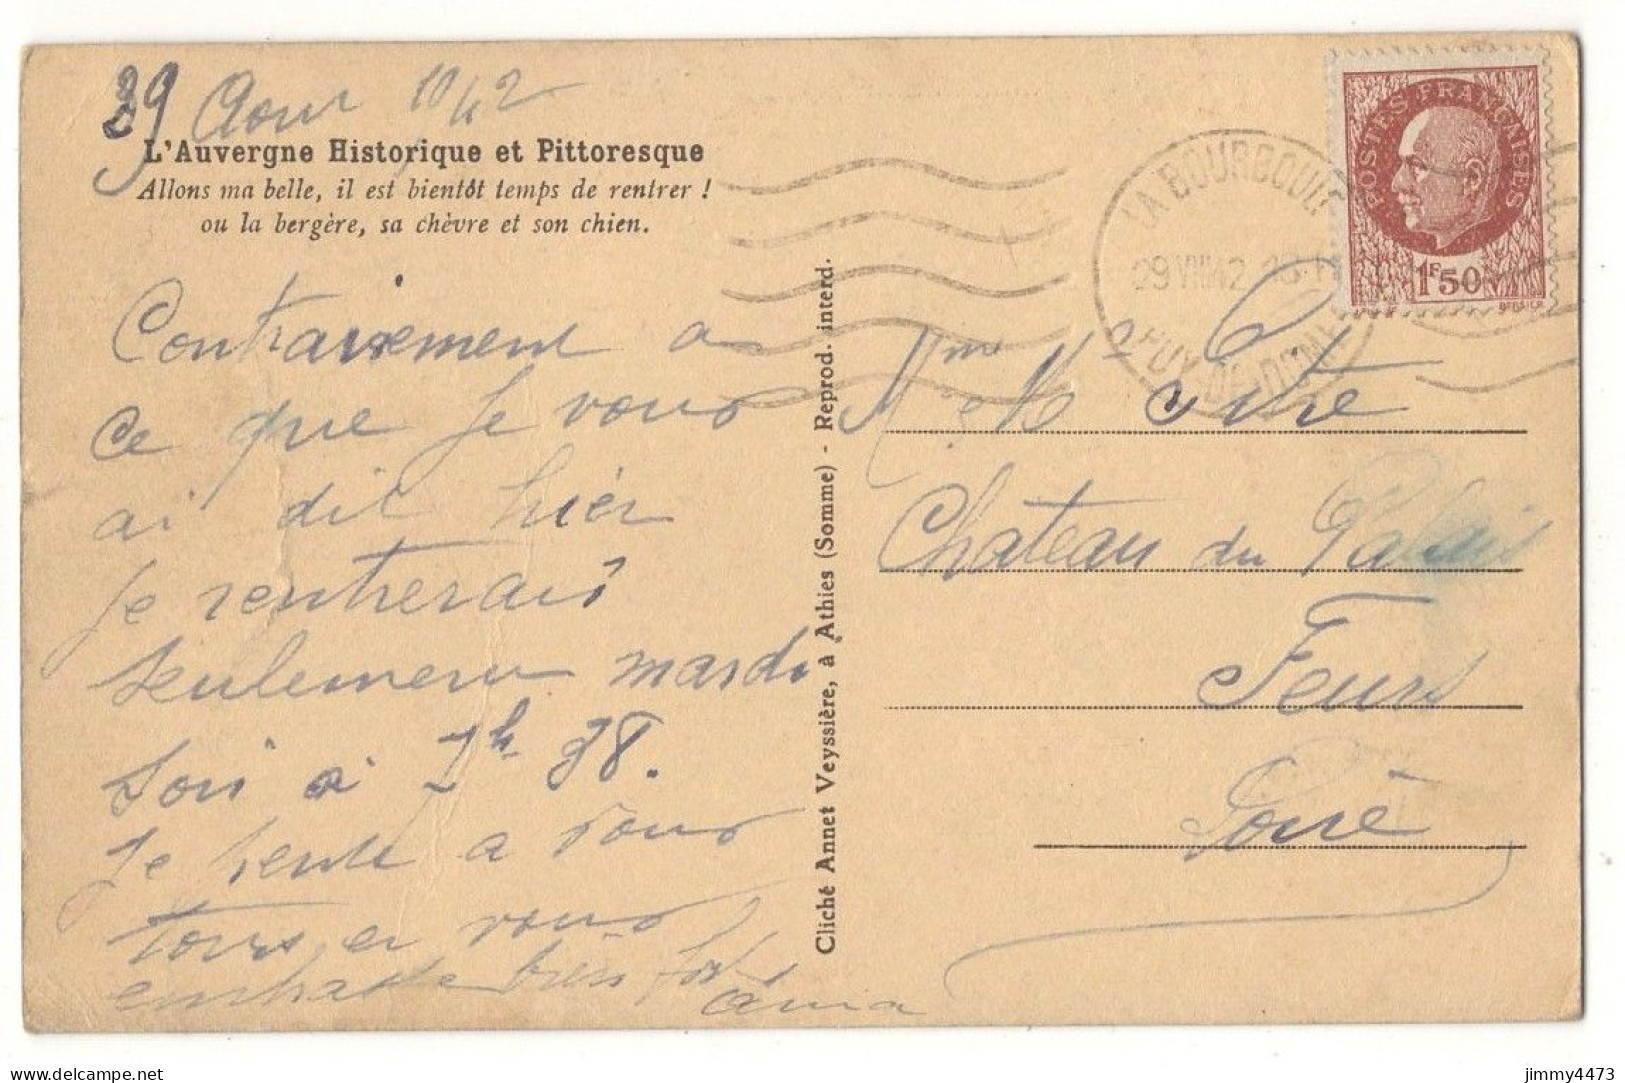 29 Aout 1942
L'Auvergne Historique et Pittoresque
Allons ma belle, il est bientôt temps de rentrer !
ou la bergère, sa chèvre et son chien.
Contrairement a
ce que je vous
ai dit hier
je rentrerais
seulement mardi
soir a 7h 38.
Je pense a vous
tous et vous
embrasse bien fort
Cliché Annet Veyssière, à Athies (Somme) - Reprod. interd.
LA BOURBOULE
29 VIII 42
PUY-DE-DOME
POSTES FRANÇAISES
1F50
Mme
Chateau du Palais
Feurs
Loire
delcampe.net
jimmy4473